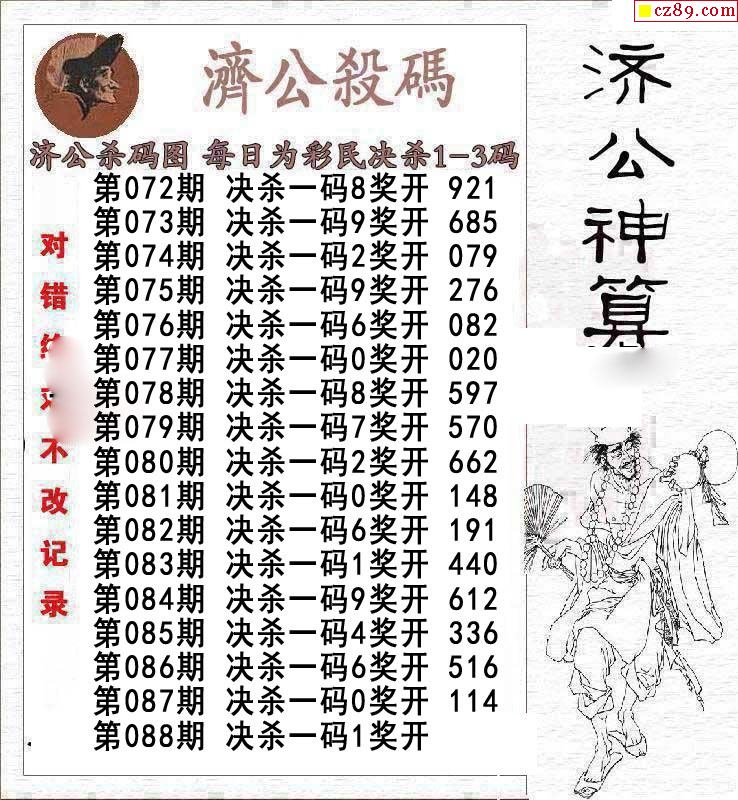 cz89.com
濟公殺碼
济公杀码图 每日为彩民决杀1-3码
第072期 决杀一码8奖开 921
第073期 决杀一码9奖开 685
第074期 决杀一码2奖开 079
第075期 决杀一码9奖开 276
第076期 决杀一码6奖开 082
第077期 决杀一码0奖开 020
第078期 决杀一码8奖开 597
第079期 决杀一码7奖开 570
第080期 决杀一码2奖开 662
第081期 决杀一码0奖开 148
第082期 决杀一码6奖开 191
第083期 决杀一码1奖开 440
第084期 决杀一码9奖开 612
第085期 决杀一码4奖开 336
第086期 决杀一码6奖开 516
第087期 决杀一码0奖开 114
第088期 决杀一码1奖开
对错绝对不改记录
济公神算